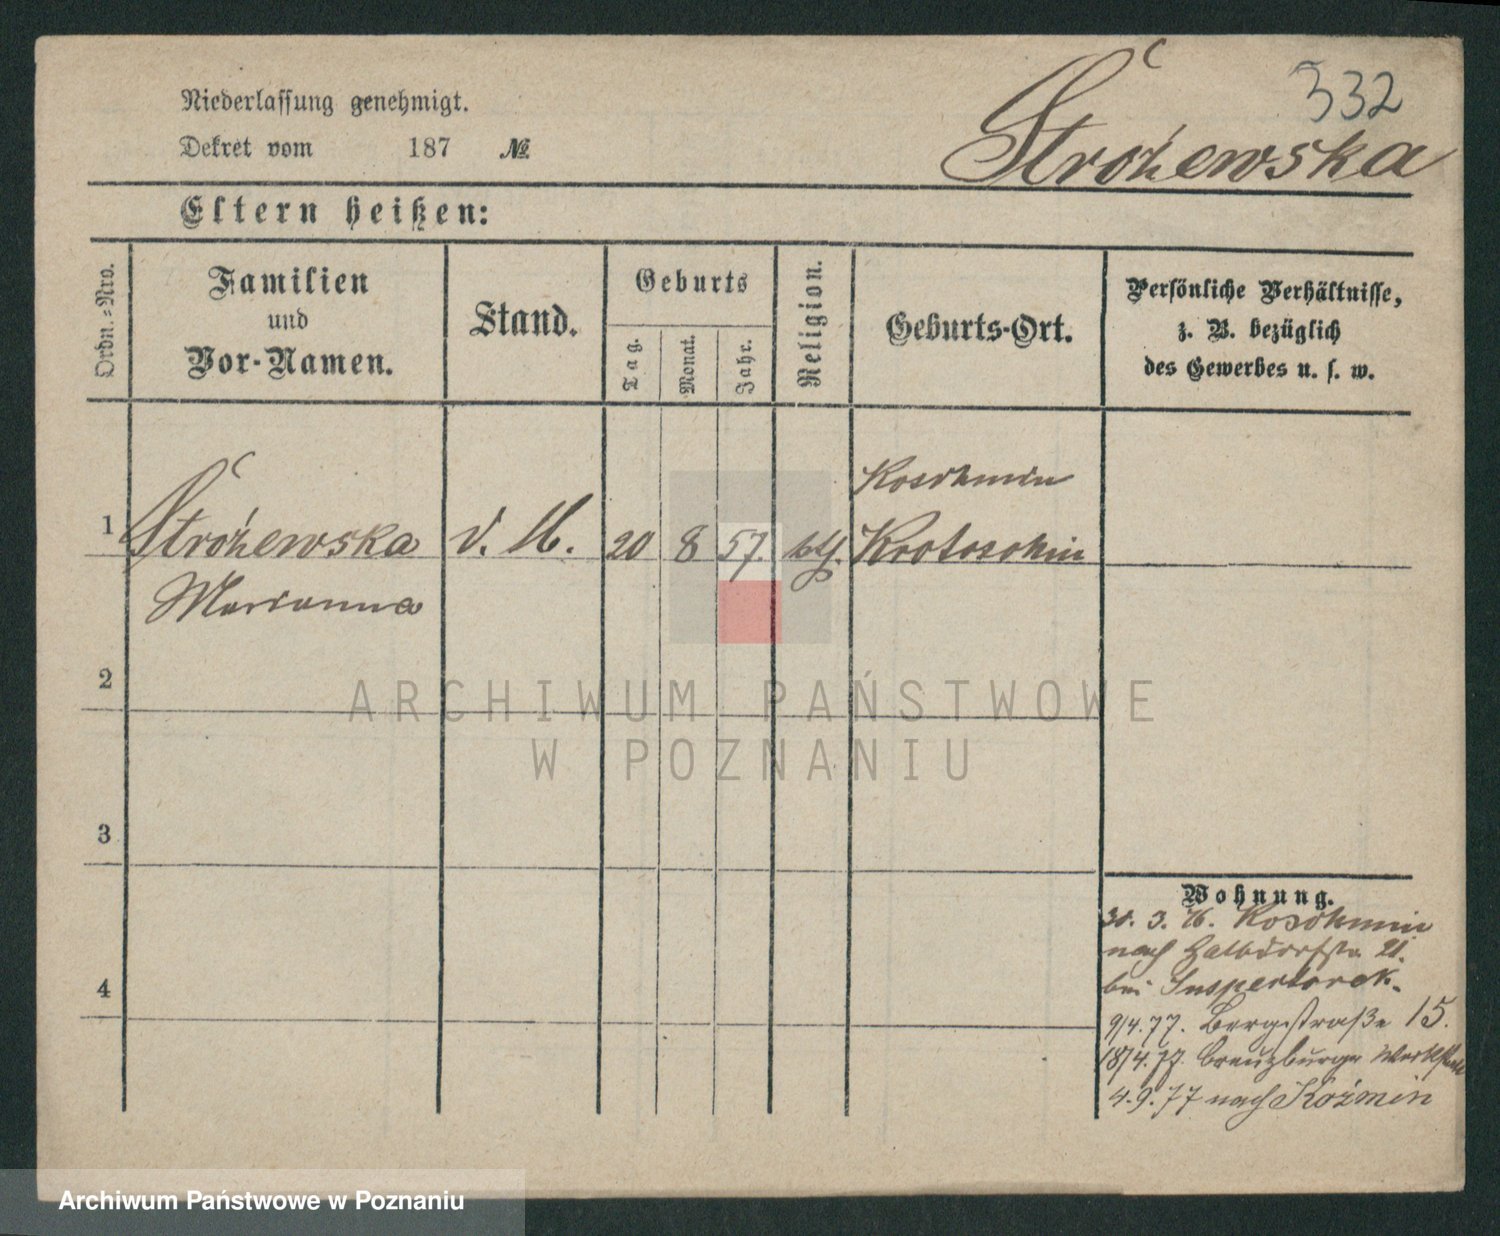 332
Niederlassung genehmigt.
Dekret vom 187 №
Stróżewska
Eltern heißen:
Ordn.=Nro.
Familien
und
Vor-Namen.
Stand.
Geburts
Tag.
Monat.
Jahr.
Religion.
Geburts-Ort.
Persönliche Verhältnisse,
z. B. bezüglich
des Gewerbes u. s. w.
Koschmin
1 Stróżewska d. M. 20 8 57. kth. Krotoschin
Marianna
2
ARCHIWUM PAŃSTWOWE
W POZNANIU
3
Wohnung.
30. 3. 76. Koschmin
nach Halbdorfstr. 21.
bei
9/4.77. Bergstraße 15.
18/4.77.
4
4.9.77 nach Koźmin
Archiwum Państwowe w Poznaniu